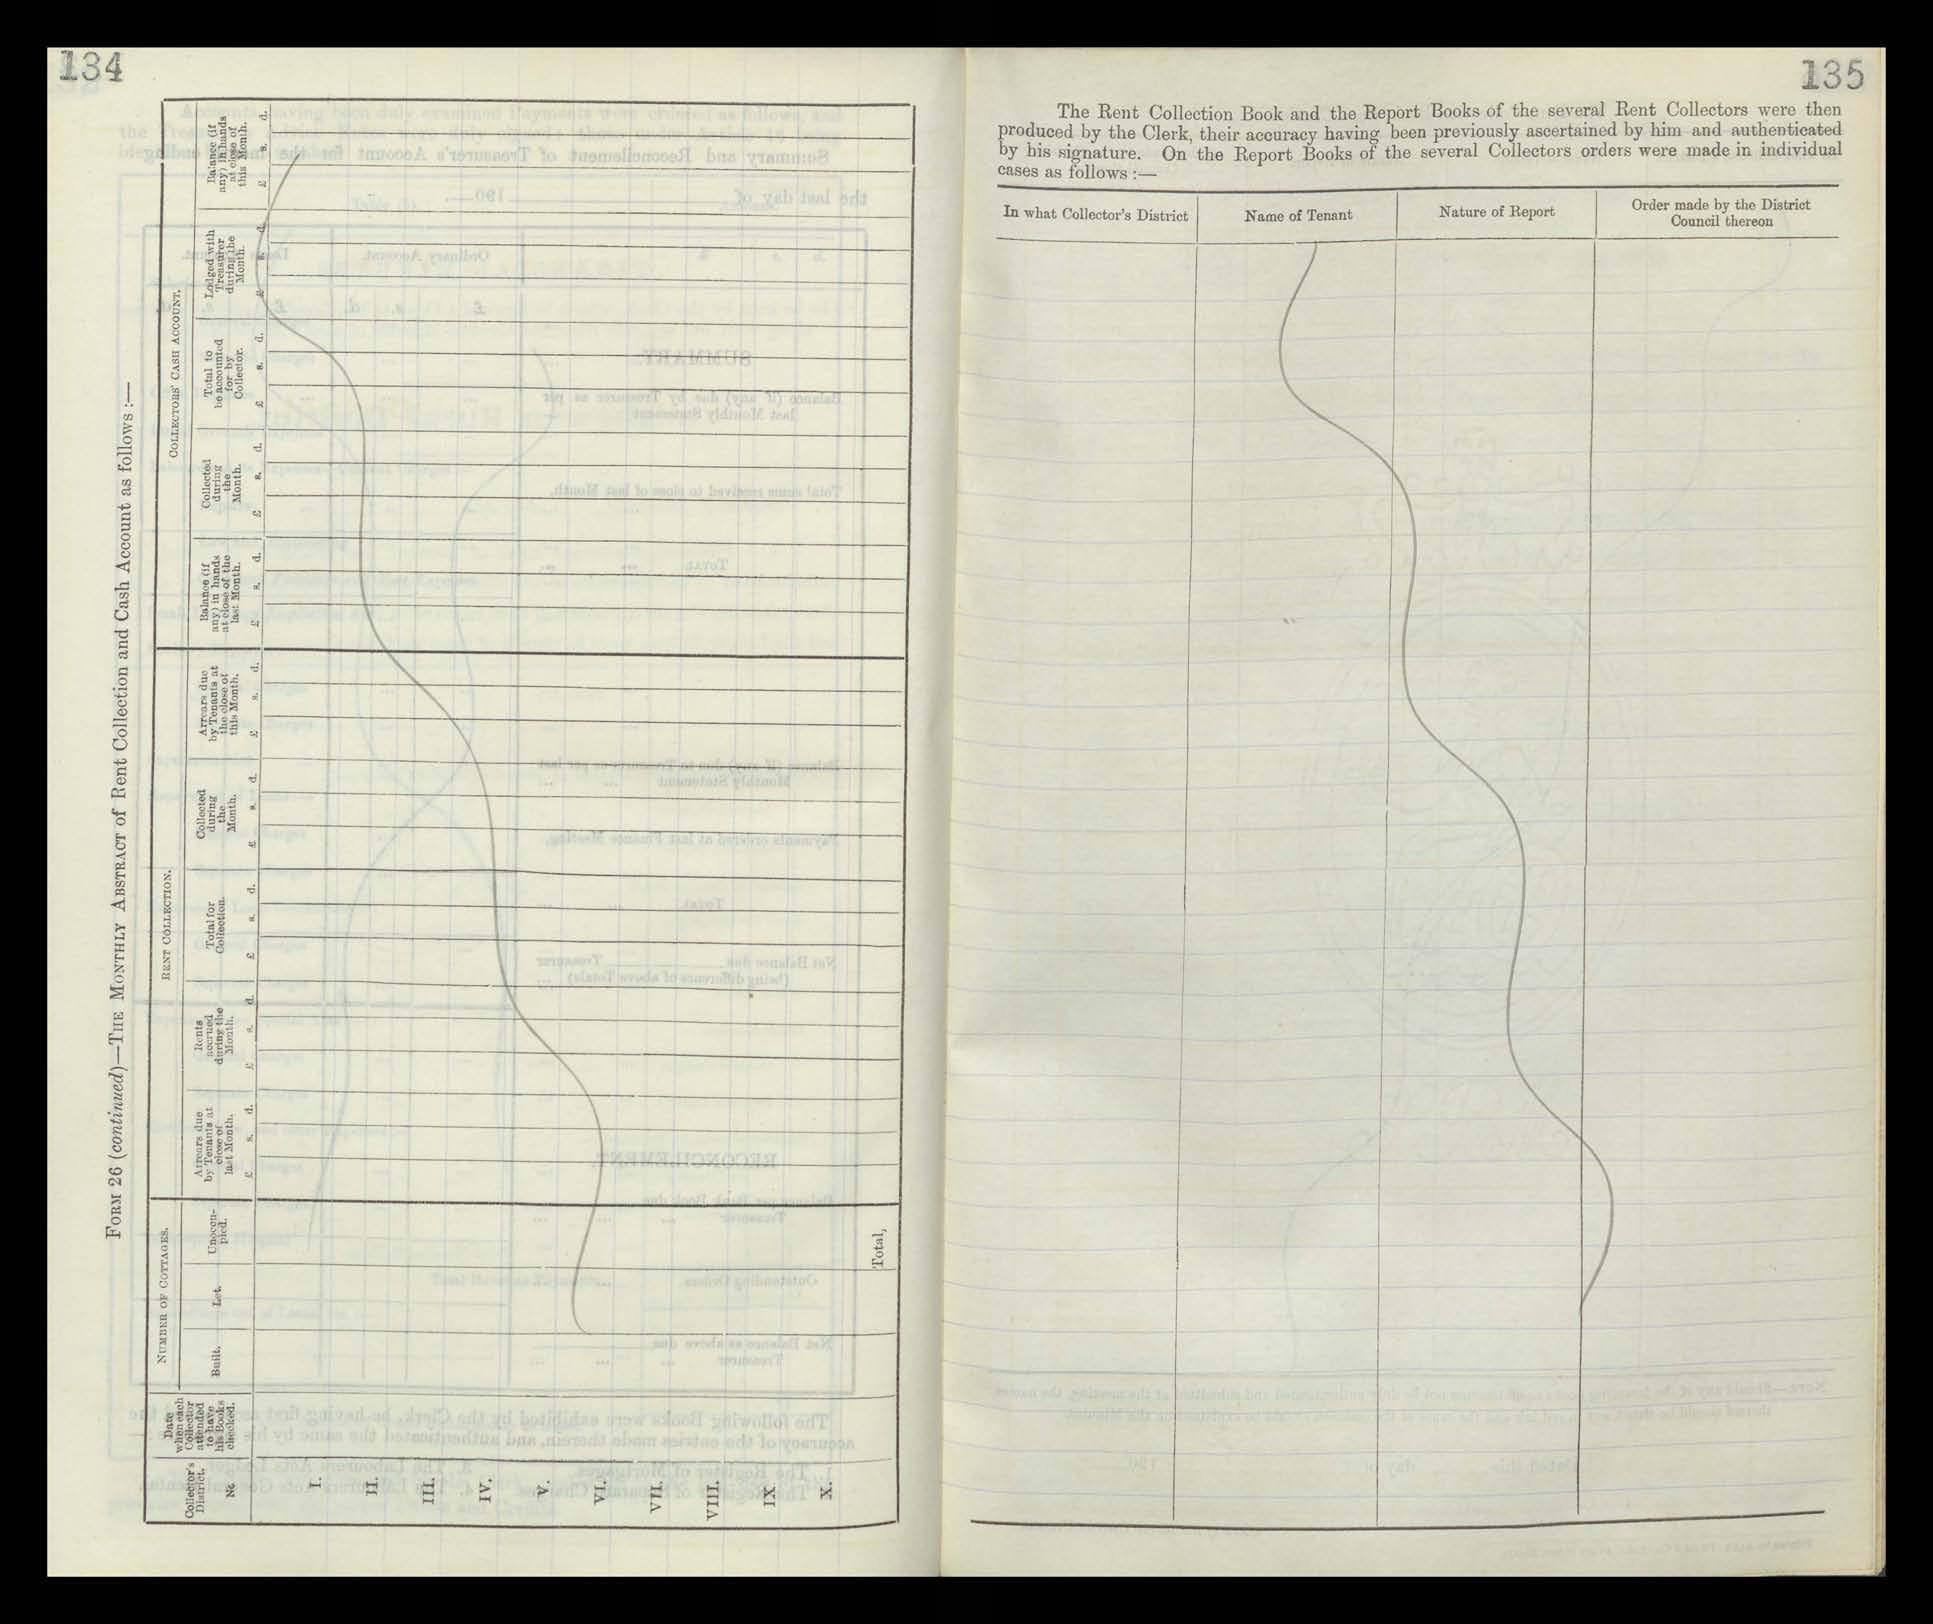 134
FORM 26 (continued)—THE MONTHLY ABSTRACT of Rent Collection and Cash Account as follows :—
Collector's
District.
No
Date
when each
Collector
attended
to have
his Books
checked.
NUMBER OF COTTAGES.
Built.
Let.
Unoccu-
pied.
RENT COLLECTION.
Arrears due
by Tenants at
close of
last Month.
£ s. d.
Rents
accrued
during the
Month.
£ s. d.
Total for
Collection.
£ s. d.
Collected
during
the
Month.
£ s. d.
Arrears due
by Tenants at
the close of
this Month.
£ s. d.
COLLECTORS' CASH ACCOUNT.
Balance (if
any) in hands
at close of the
last Month.
£ s. d.
Collected
during
the
Month.
£ s. d.
Total to
be accounted
for by
Collector.
£ s. d.
Lodged with
Treasurer
during the
Month.
£ s. d.
Balance (if
any) in hands
at close of
this Month.
£ s. d.
I.
II.
III.
IV.
V.
VI.
VII.
VIII.
IX.
X.
Total,
135
The Rent Collection Book and the Report Books of the several Rent Collectors were then
produced by the Clerk, their accuracy having been previously ascertained by him and authenticated
by his signature. On the Report Books of the several Collectors orders were made in individual
cases as follows :—
In what Collector's District
Name of Tenant
Nature of Report
Order made by the District
Council thereon